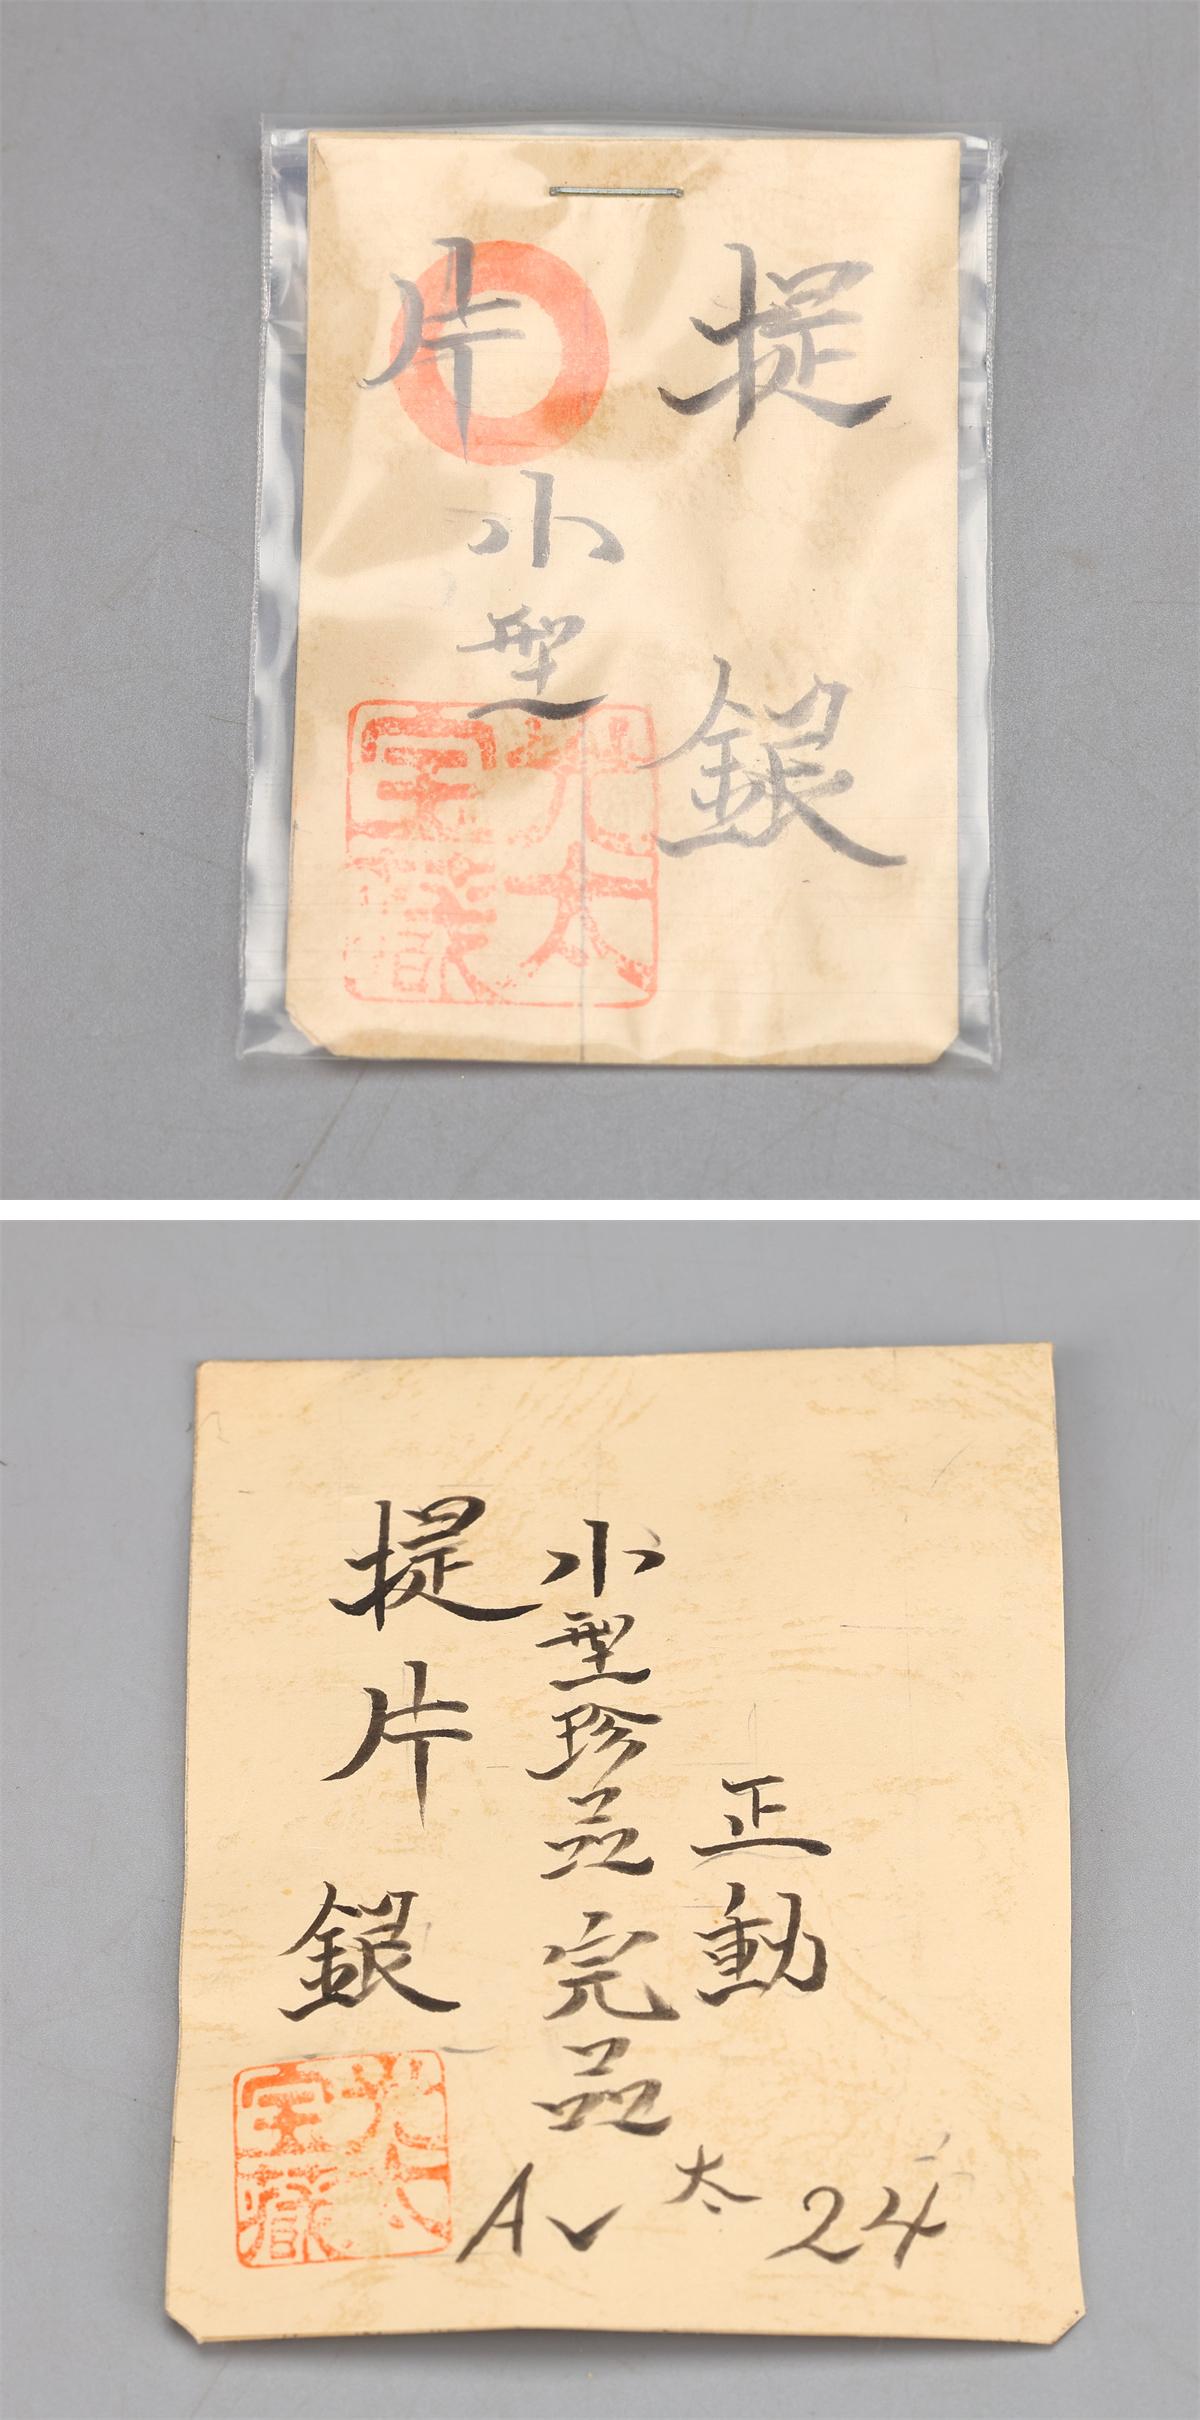 提銀
小型
片
光太
宝藏
正動
小型珍品完品
提片銀
光太
宝藏
A✓ 太 24